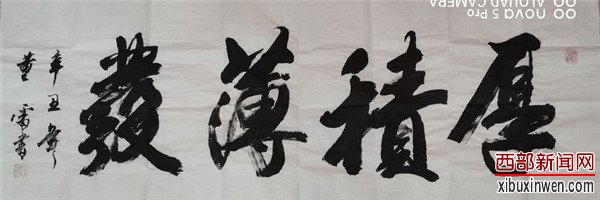 nova 5 Pro
AI QUAD CAMERA
厚積薄發
辛丑年
董雷書
西部新闻网
xibuxinwen.com